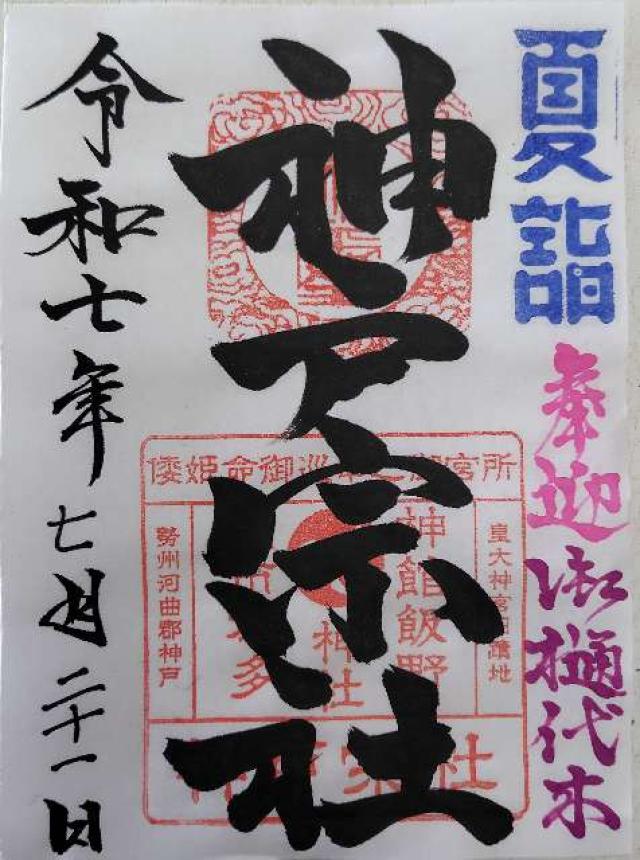 夏詣
奉迎御樋代木
神戸宗社
倭姫命御巡
宮所
皇大神宮
蹟地
神館飯野
神社
多
勢州河曲郡神戸
社
令和七年七月二十一日